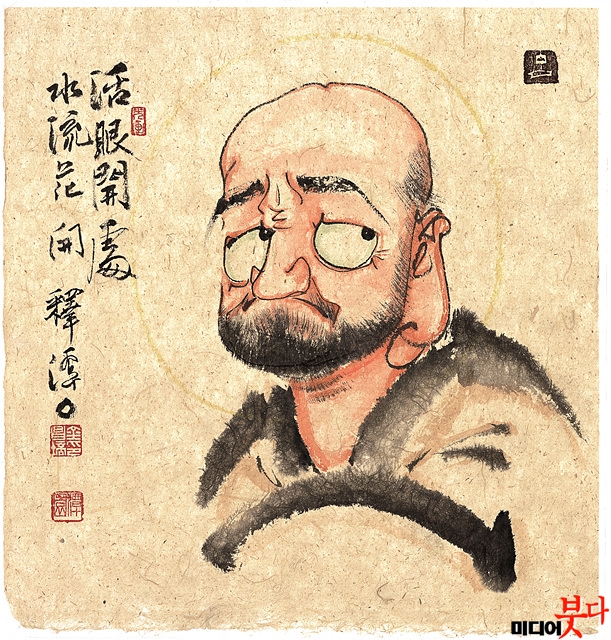 活眼開處
水流花開 釋潭
미디어붓다